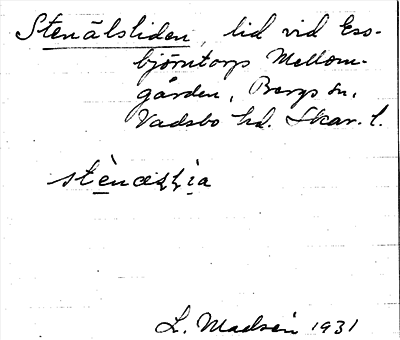 Stenålsliden, lid vid Eso-
björntorps Mellom-
gården, Bergs sn,
Vadsbo hd. Skar. l.
L. Madsén 1931